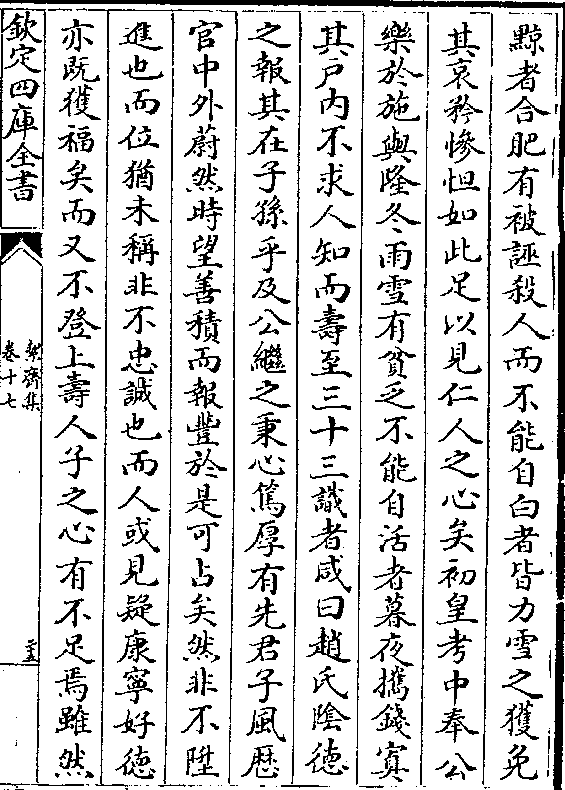 黥者合肥有被誣殺人而不能自白者皆力雪之獲免
其哀矜惨怛如此足以見仁人之心矣初皇考中奉公
樂於施與隆冬雨雪有貧乏不能自活者暮夜攜錢寘
其戸内不求人知而壽至三十三識者咸曰趙氏陰德
之報其在子孫乎及公繼之秉心篤厚有先君子風歴
官中外蔚然時望善積而報豐於是可占矣然非不陞
進也而位猶未稱非不忠誠也而人或見疑康寧好徳
亦既獲福矣而又不登上壽人子之心有不足焉雖然
欽定四庫全書
絜齋集
卷十七